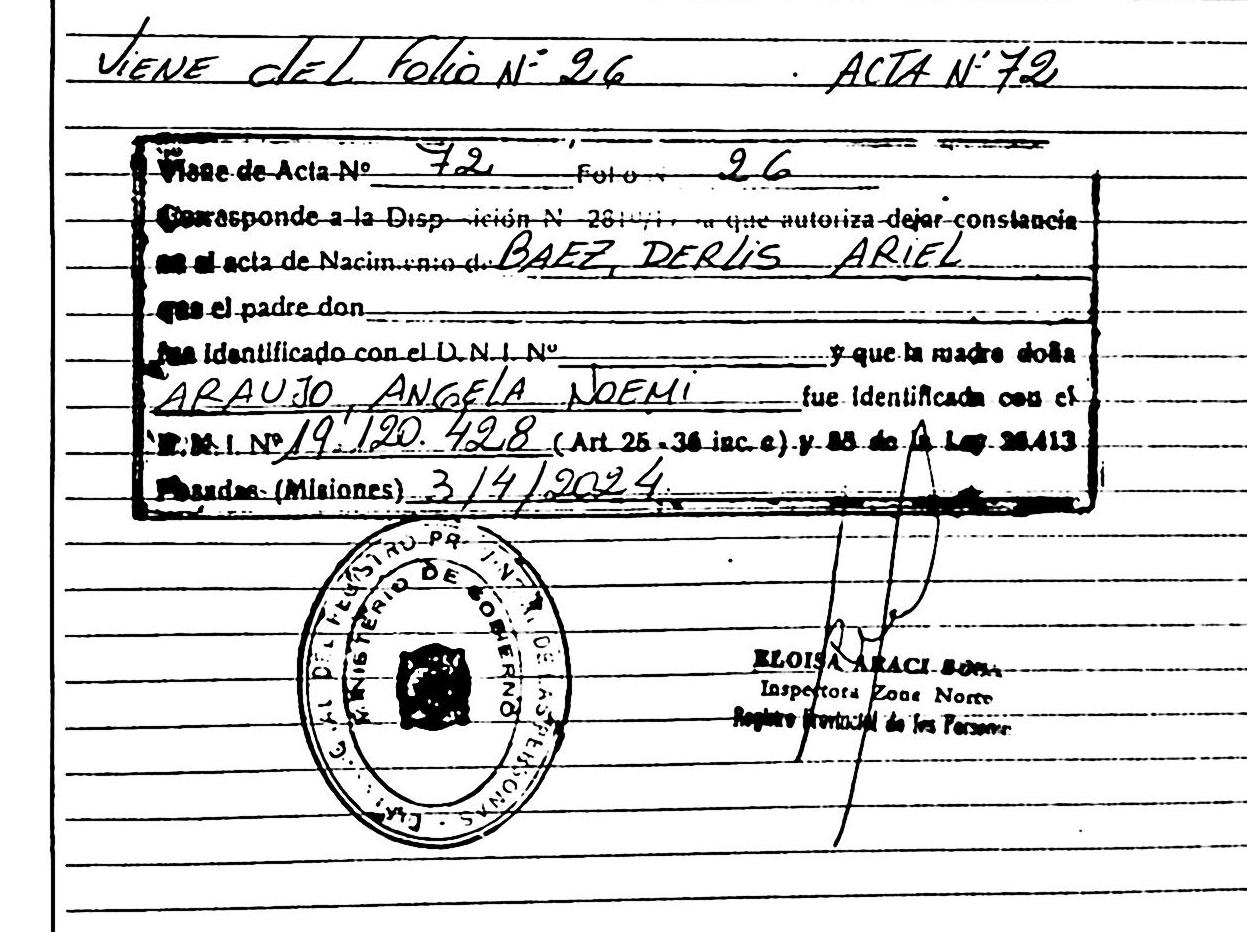 VIENE dEL Folio N° 26 ACTA N° 72
Viene de Acta Nº 72 Folio N 26
Corresponde a la Disposición N que autoriza dejar constancia
en el acta de Nacimiento de BAEZ, DERLIS ARIEL
que el padre don
fue identificado con el D. N. I. Nº y que la madre doña
ARAUJO, ANGELA NOEMI fue identificada con el
D. N. I. Nº 19.120.428 (Art. 25 - 36 inc. c) y 85 de la Ley 26.413
Posadas (Misiones) 3/4/2024
GRAL DEL REGISTRO PROVINCIAL DE LAS PERSONAS
MINISTERIO DE GOBIERNO
ELOISA ARACI
Inspectora Zona Norte
Registro Provincial de las Personas